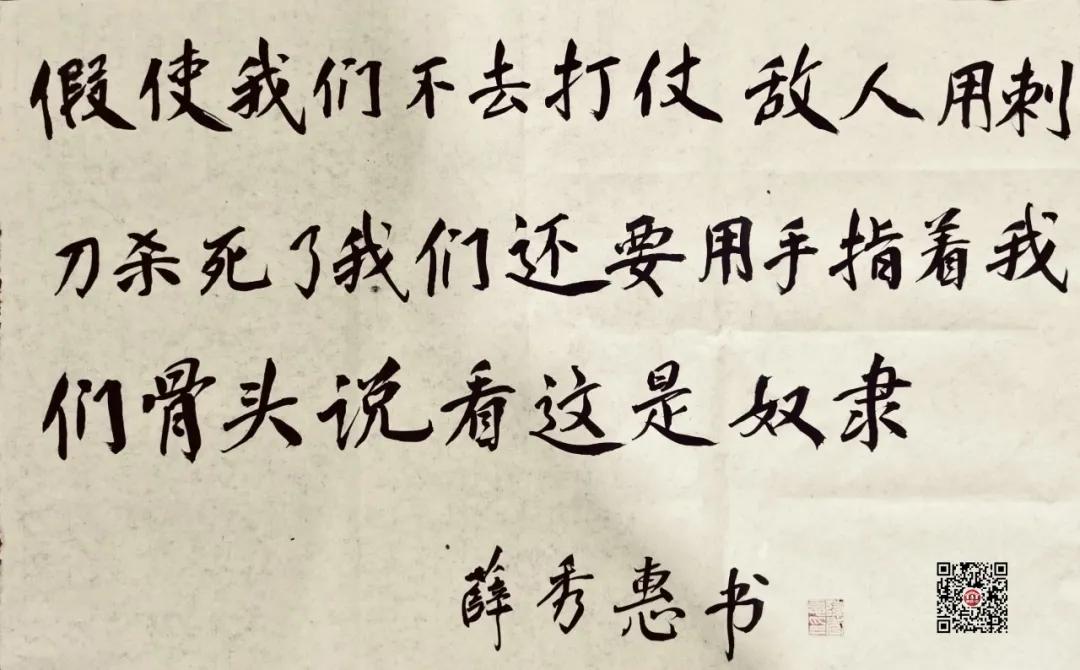 假使我们不去打仗 敌人用刺
刀杀死了我们还要用手指着我
们骨头说看这是奴隶
薛秀惠书